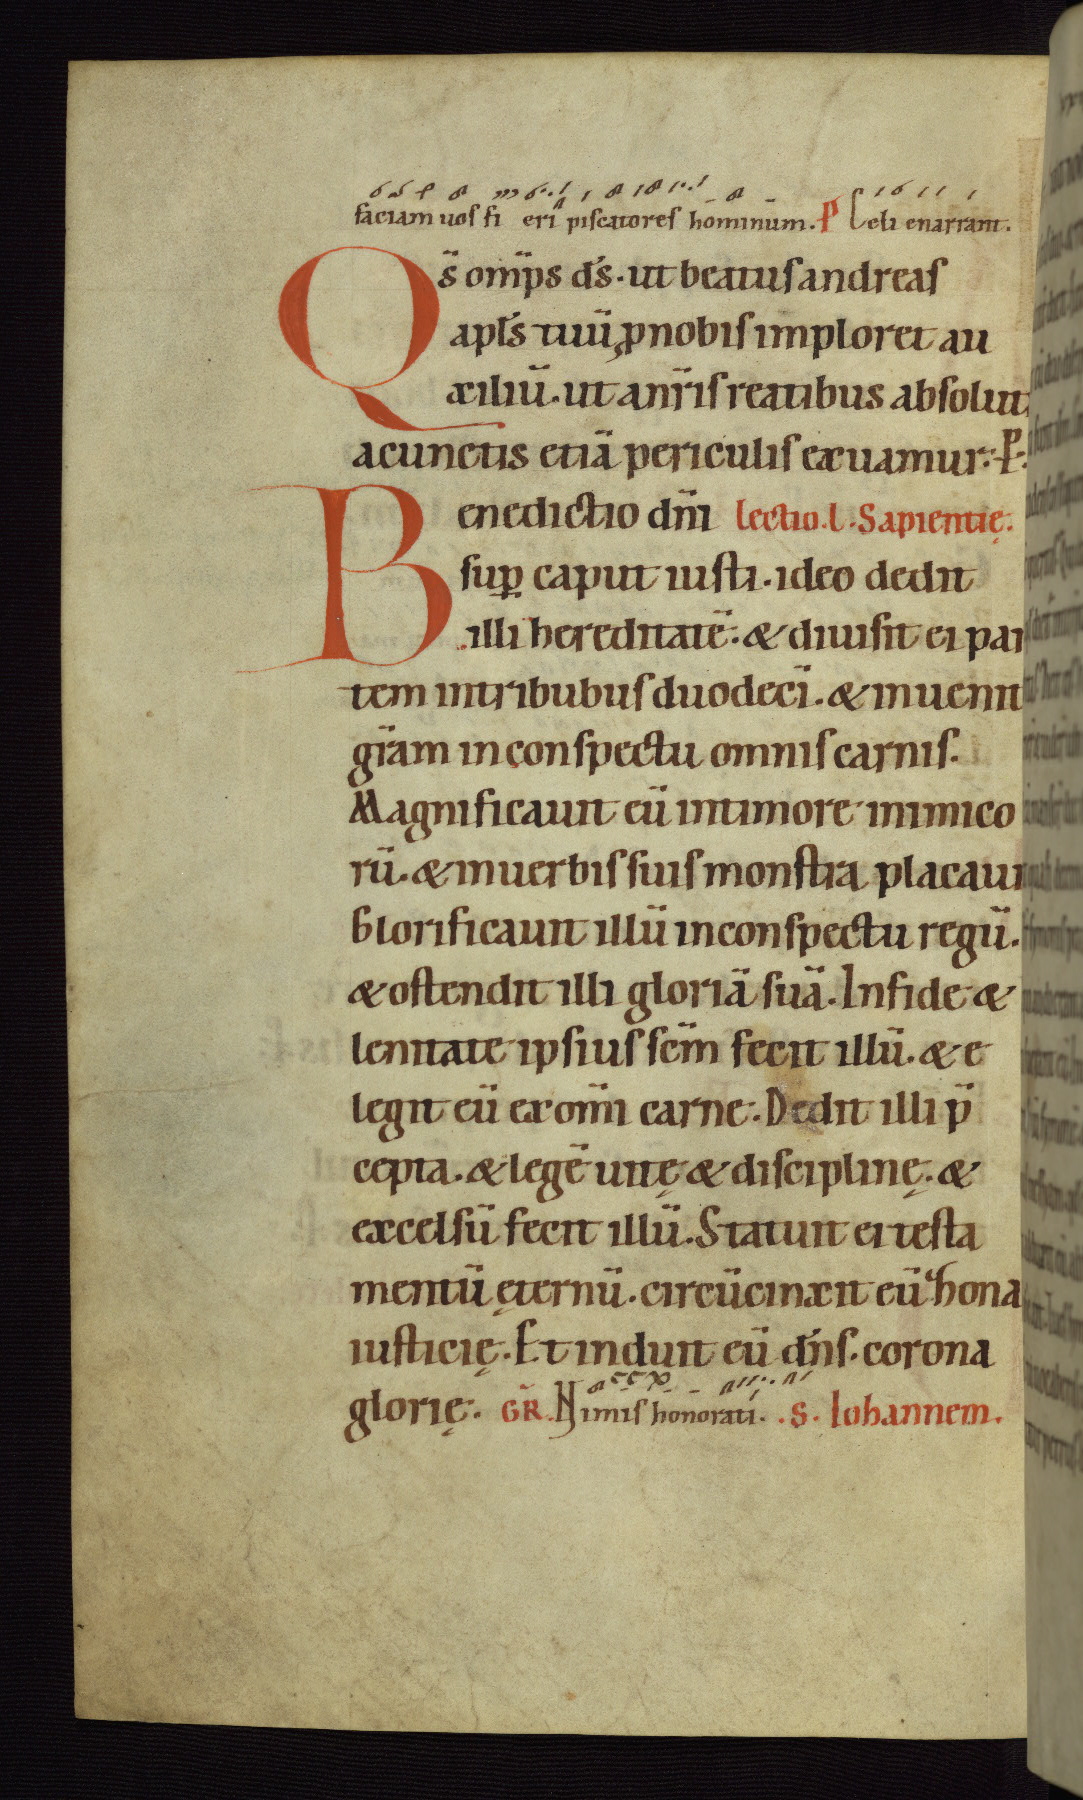 faciam uos fi eri piscatores hominum. P Celi enarrant.
Qs̄ om̄ps ds̄. ut beatus andreas
apl̄s tuus, p nobis imploret au
xiliū. ut a nr̄is reatibus absoluti
a cunctis etiā periculis exuamur. P.
Benedictio dn̄i Lectio. l. Sapientię.
sup̱ caput iusti. ideo dedit
illi hereditatē. & diuisit ei par
tem in tribubus duodecī. & inuenit
gr̄am in conspectu omnis carnis.
Magnificauit eū in timore inimico
rū. & in uerbis suis monstra placauit
Glorificauit illū in conspectu regū.
& ostendit illi gloriā suā. In fide &
lenitate ipsius sc̄m fecit illū. & e
legit eū ex om̄i carne. Dedit illi p̄
cepta. & legē uitę & disciplinę. &
excelsū fecit illū. Statuit ei testa
mentū ęternū. circūcinxit eū hona
iusticię. Et induit eū dn̄s. corona
glorię. GR. Nimis honorati. .S. Iohannem.